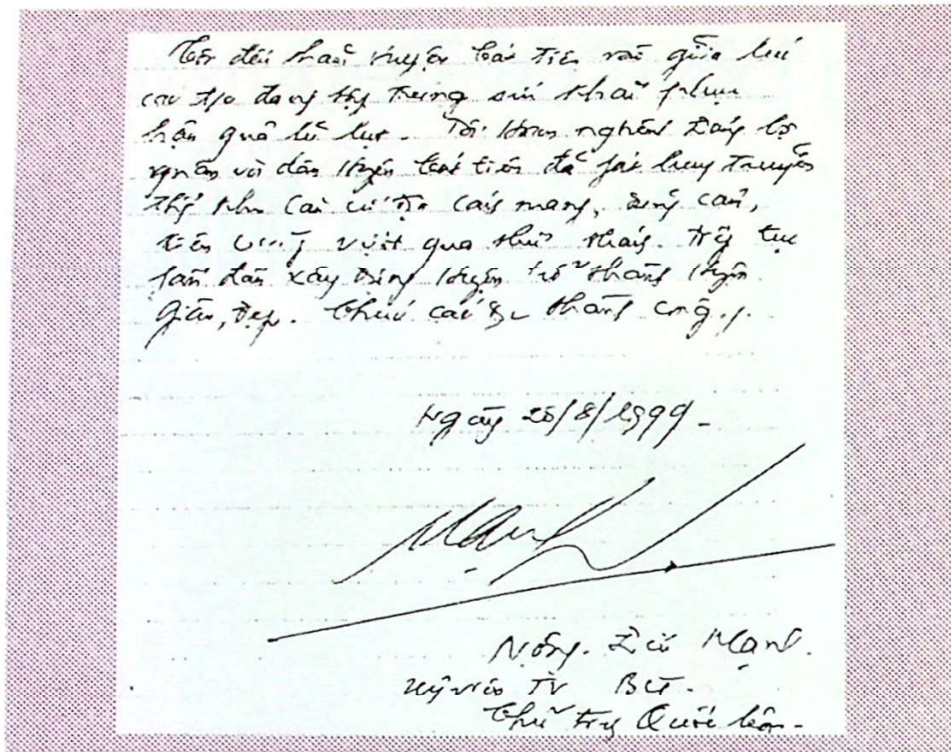 Tôi đến thăm huyện Cát Tiên vào giữa lúc
các đ/c đang tập trung sức khắc phục
hậu quả lũ lụt. Tôi hoan nghênh Đảng bộ
quân và dân huyện Cát Tiên đã phát huy truyền
thống căn cứ địa cách mạng, dũng cảm,
kiên cường vượt qua thử thách. tiếp tục
phấn đấu xây dựng huyện trở thành huyện
giàu, đẹp. Chúc các đ/c thành công.
Ngày /8/1999
Mạnh
Nông Đức Mạnh.
Uỷ viên TV BCT.
Chủ tịch Quốc hội